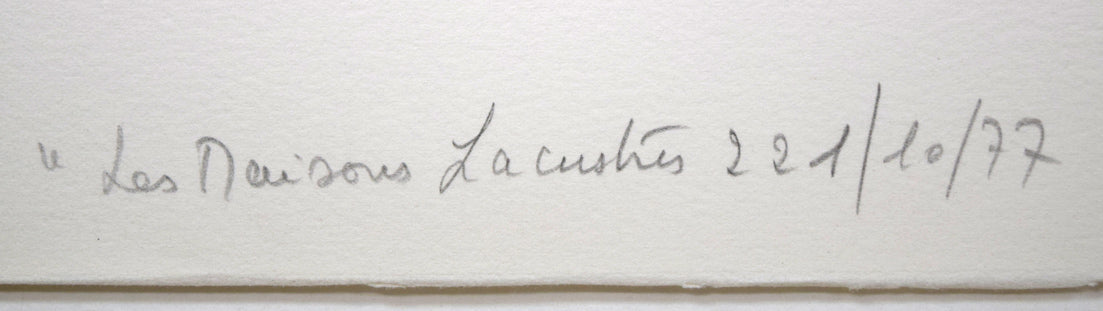 " Les Maisons Lacustres 2 2 1/10/77